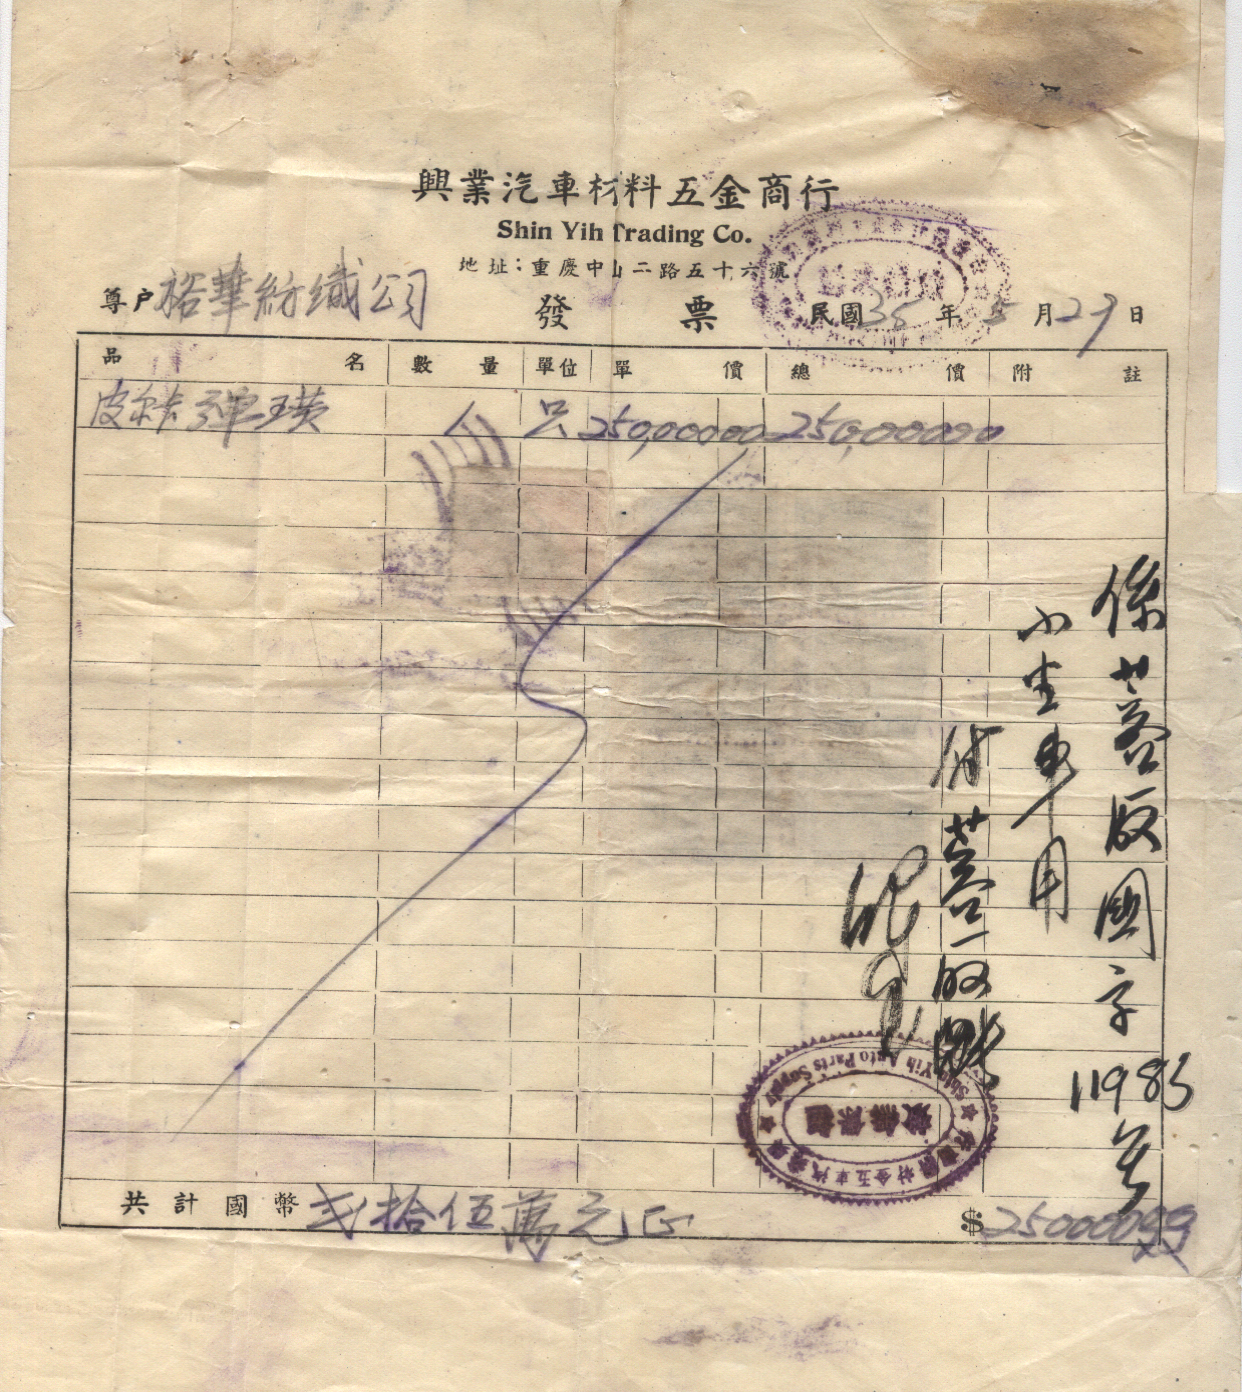 興業汽車材料五金商行
Shin Yih Trading Co.
地址：重慶中山二路五十六號
尊户 裕華紡織公司
發票
民國35年5月29日
品名 數量 單位 單價 總價 附註
皮尔卡弹璜 只 250,000 00 250,000 00
係蓉版國字11985号
小坐車用
付蓉
Shin Yih Auto Parts Supply
共計國幣 弍拾伍萬元正 $250000